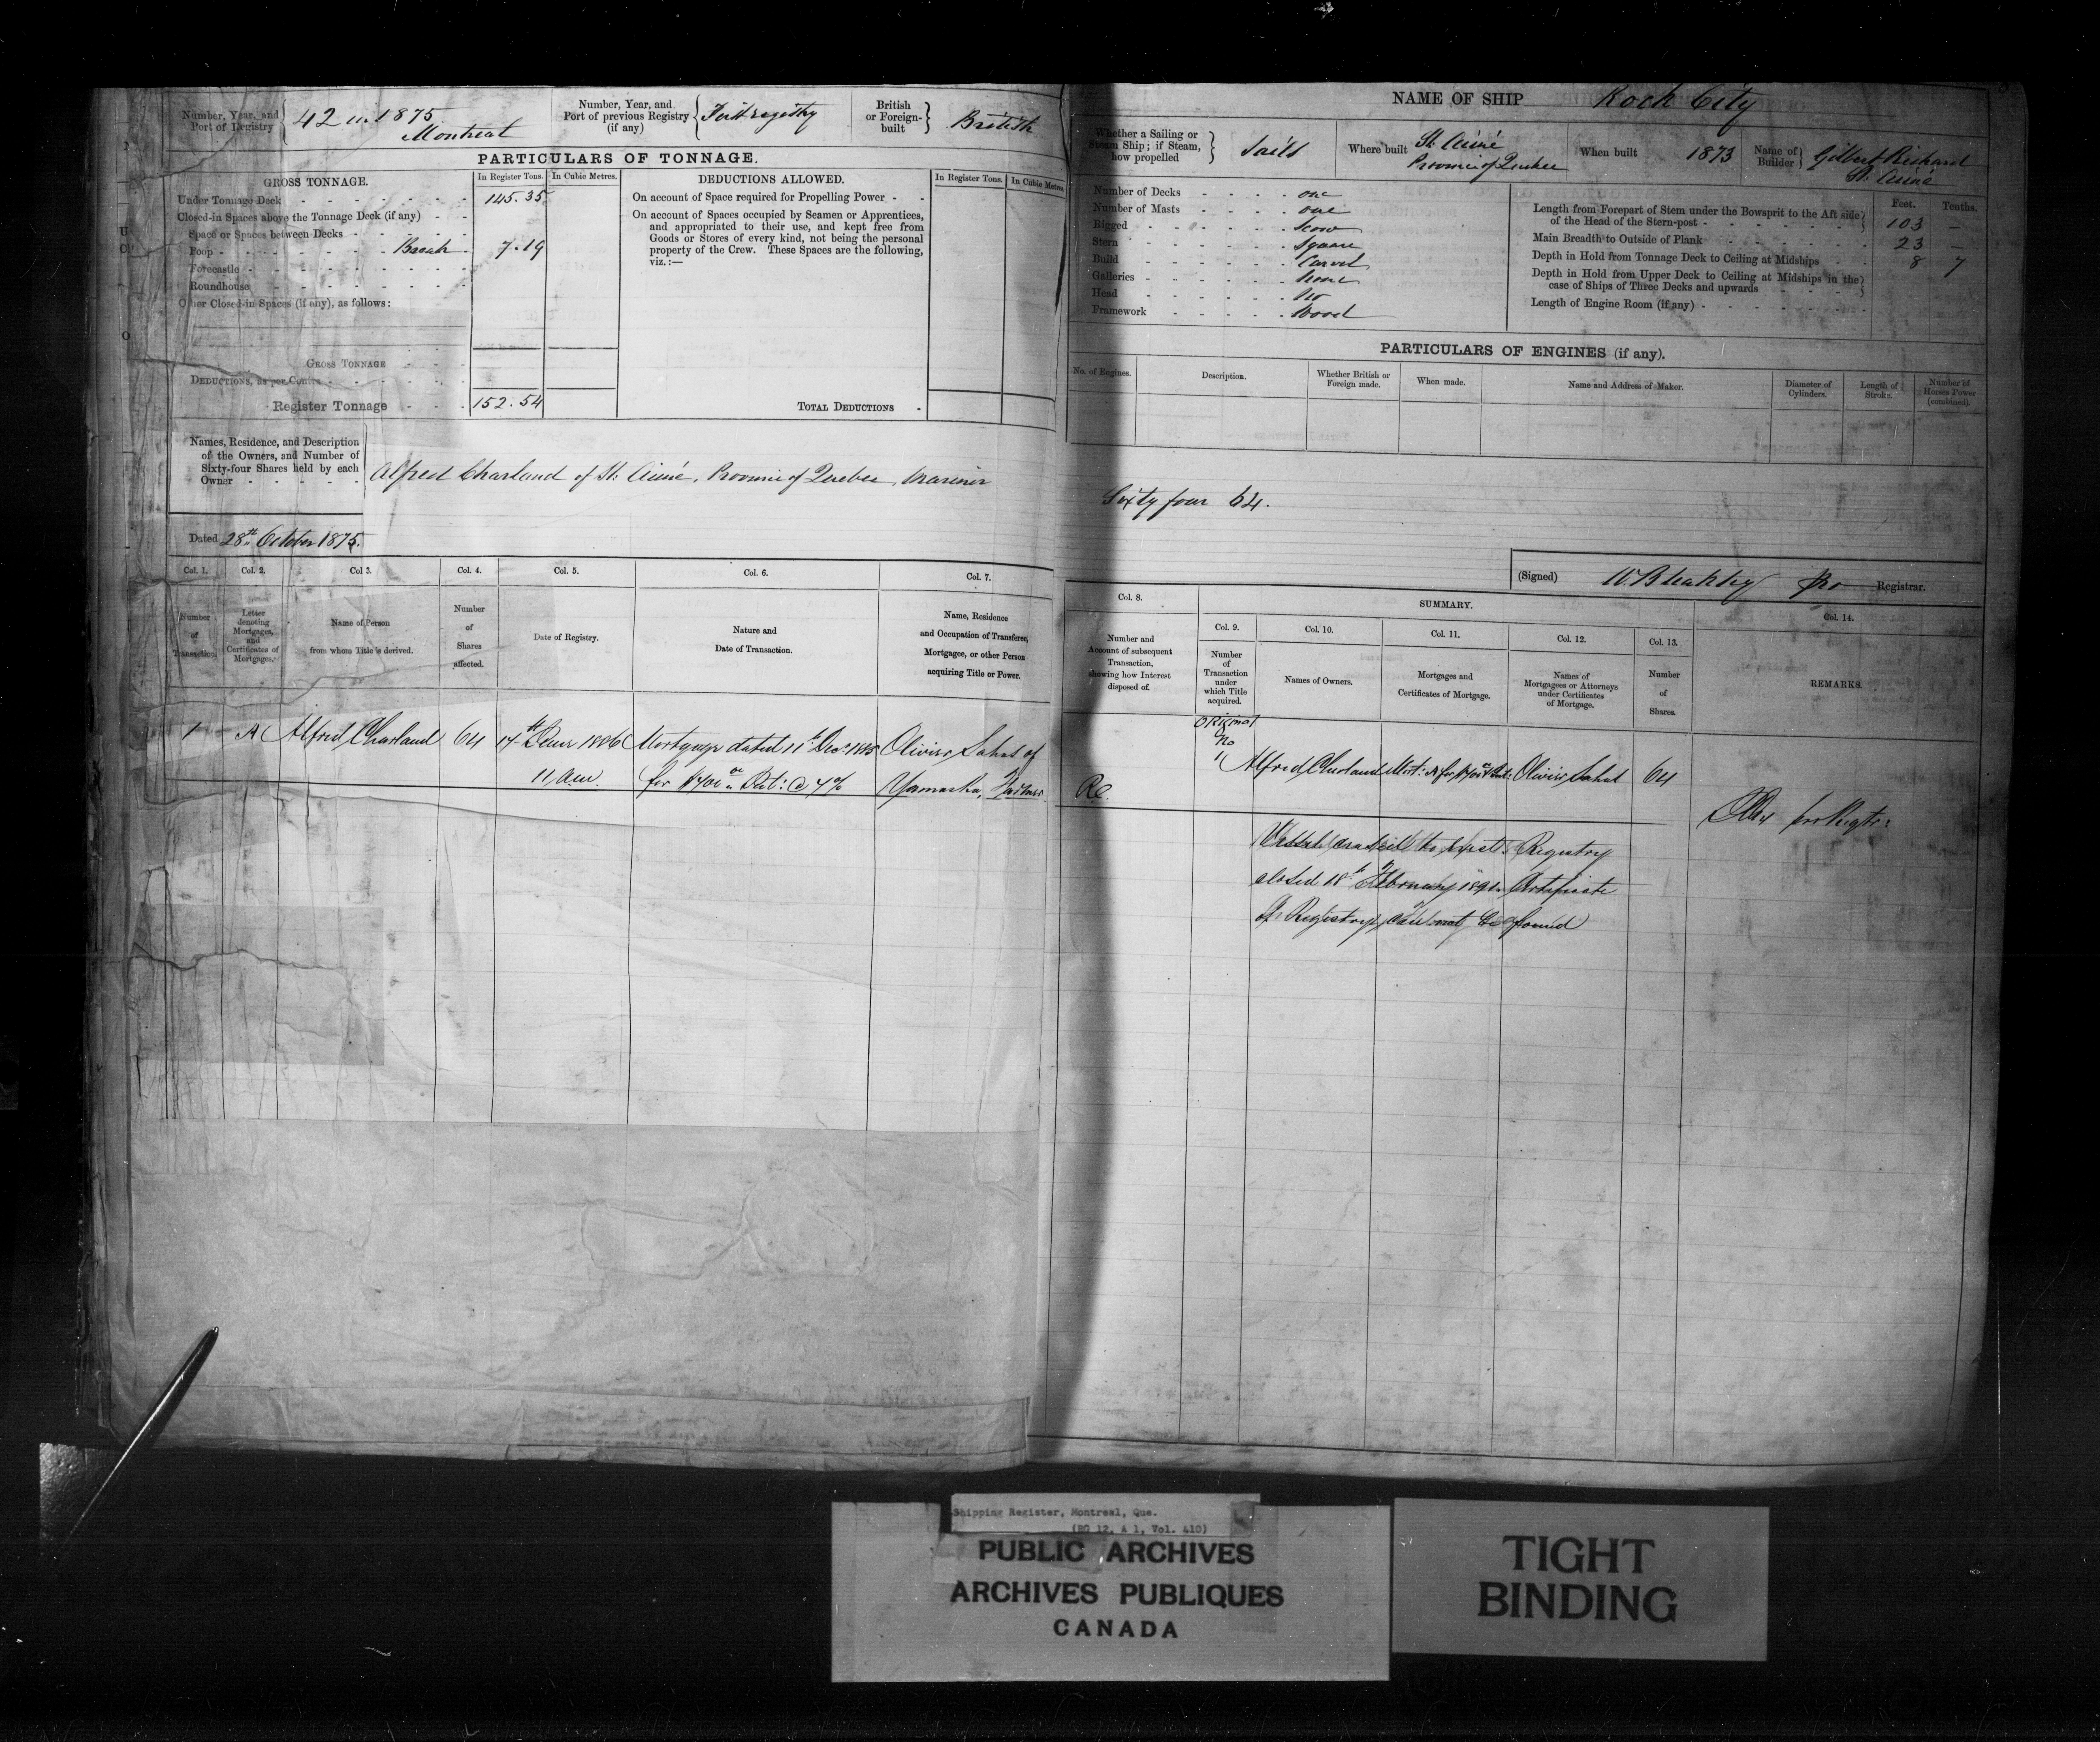 Number, Year, and Port of Registry 42 in 1875 Montreal
Number, Year, and Port of previous Registry (if any) First registry
British or Foreign-built British
PARTICULARS OF TONNAGE.
GROSS TONNAGE. In Register Tons. In Cubic Metres.
Under Tonnage Deck 145.35
Closed-in Spaces above the Tonnage Deck (if any)
Space or Spaces between Decks
Poop Break 7.19
Forecastle
Roundhouse
Other Closed-in Spaces (if any), as follows:
GROSS TONNAGE
DEDUCTIONS, as per Contra
Register Tonnage 152.54
DEDUCTIONS ALLOWED. In Register Tons. In Cubic Metres.
On account of Space required for Propelling Power
On account of Spaces occupied by Seamen or Apprentices,
and appropriated to their use, and kept free from
Goods or Stores of every kind, not being the personal
property of the Crew. These Spaces are the following,
viz.:—
TOTAL DEDUCTIONS
Names, Residence, and Description
of the Owners, and Number of
Sixty-four Shares held by each
Owner
Alfred Charland of St. Aimé, Province of Quebec, Mariner
Dated 28th October 1875.
Col. 1. Col. 2. Col. 3. Col. 4. Col. 5. Col. 6. Col. 7.
Number of Transaction.
Letter denoting Mortgages, and Certificates of Mortgages.
Name of Person from whom Title is derived.
Number of Shares affected.
Date of Registry.
Nature and Date of Transaction.
Name, Residence and Occupation of Transferee, Mortgagee, or other Person acquiring Title or Power.
1 A Alfred Charland 64 14th 1886 Mortgage dated 11th Decr. 1885 Olivier of
11 a.m. for @ 7% Yamaska,
NAME OF SHIP Rock City
Whether a Sailing or Steam Ship; if Steam, how propelled Sails
Where built St. Aimé Province of Quebec
When built 1873
Name of Builder Gilbert Richard St. Aimé
Number of Decks one
Number of Masts one
Rigged Scow
Stern Square
Build Carvel
Galleries None
Head No
Framework Wood
Feet. Tenths.
Length from Forepart of Stem under the Bowsprit to the Aft side of the Head of the Stern-post 103 –
Main Breadth to Outside of Plank 23 –
Depth in Hold from Tonnage Deck to Ceiling at Midships 8 7
Depth in Hold from Upper Deck to Ceiling at Midships in the case of Ships of Three Decks and upwards
Length of Engine Room (if any)
PARTICULARS OF ENGINES (if any).
No. of Engines. Description. Whether British or Foreign made. When made. Name and Address of Maker. Diameter of Cylinders. Length of Stroke. Number of Horses Power (combined).
Sixty four 64.
(Signed) W. Bleakley pro Registrar.
Col. 8. SUMMARY. Col. 14.
Col. 9. Col. 10. Col. 11. Col. 12. Col. 13.
Number and Account of subsequent Transaction, showing how Interest disposed of.
Number of Transaction under which Title acquired.
Names of Owners.
Mortgages and Certificates of Mortgage.
Names of Mortgagees or Attorneys under Certificates of Mortgage.
Number of Shares.
REMARKS.
Original No 1 Alfred Charland Mort: A for Olivier 64
pro Regtr:
Vessel to Registry
closed 18th February 1891. Certificate
of Registry cannot be found
Shipping Register, Montreal, Que.
(RG 12, A 1, Vol. 410)
PUBLIC ARCHIVES
ARCHIVES PUBLIQUES
CANADA
TIGHT
BINDING